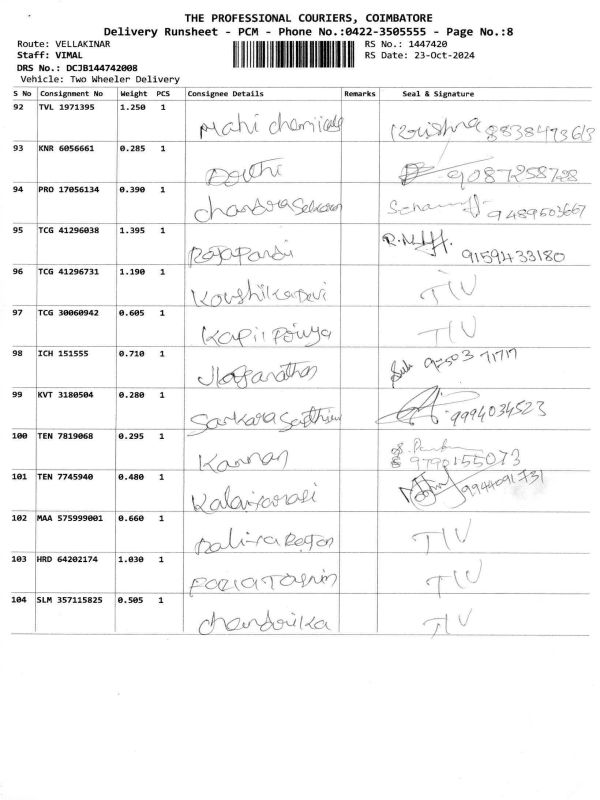 THE PROFESSIONAL COURIERS, COIMBATORE
Delivery Runsheet - PCM - Phone No.:0422-3505555 - Page No.:8
Route: VELLAKINAR RS No.: 1447420
Staff: VIMAL RS Date: 23-Oct-2024
DRS No.: DCJB144742008
Vehicle: Two Wheeler Delivery
S No Consignment No Weight PCS Consignee Details Remarks Seal & Signature
92 TVL 1971395 1.250 1
Mahi chemicals Krishna
93 KNR 6056661 0.285 1
9087258728
94 PRO 17056134 0.390 1
Chandrasekaran 9489603667
95 TCG 41296038 1.395 1
Rajapandi 9159433180
96 TCG 41296731 1.190 1
Koushika Devi
97 TCG 30060942 0.605 1
Kapil
98 ICH 151555 0.710 1
99 KVT 3180504 0.280 1
9994034523
100 TEN 7819068 0.295 1
Kannan 9790155073
101 TEN 7745940 0.480 1
Kalaiyarasi 9944091731
102 MAA 575999001 0.660 1
103 HRD 64202174 1.030 1
104 SLM 357115825 0.505 1
Chandrika